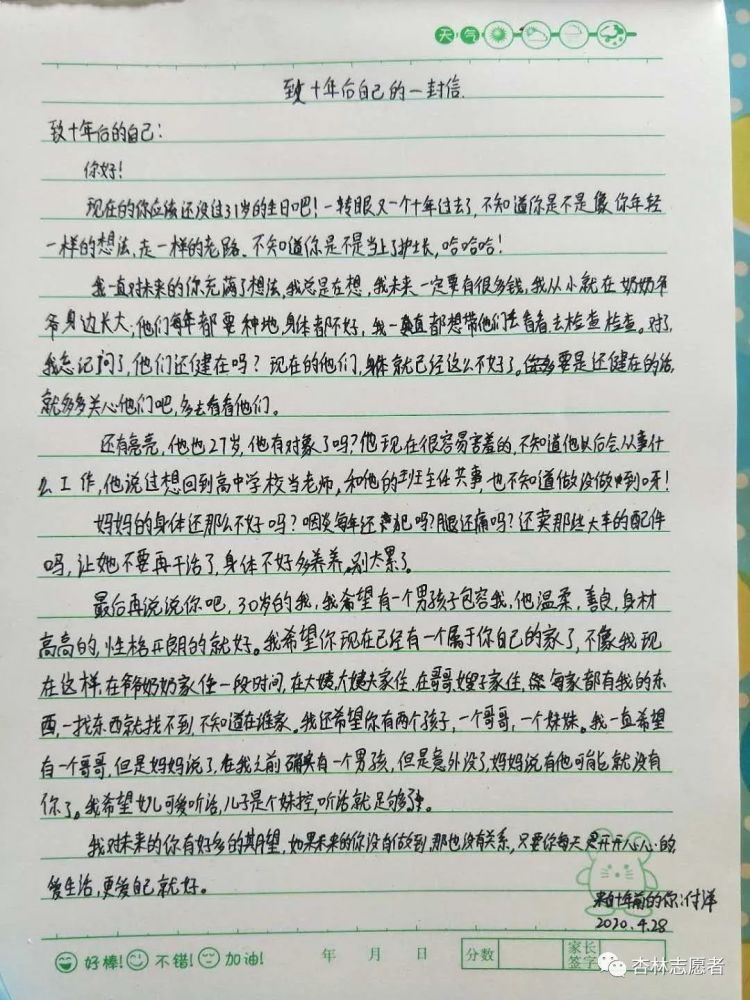 天气
致十年后自己的一封信.
致十年后的自己:
你好!
现在的你应该还没过31岁的生日吧!一转眼又一个十年过去了,不知道你是不是像你年轻
一样的想法,走一样的老路.不知道你是不是当上了护士长,哈哈哈!
我一直对未来的你充满了想法,我总是在想,我未来一定要有很多钱,我从小就在奶奶爷
爷身边长大,他们每年都要种地,身体都不好,我一直都想带他们去看看,去检查检查。对了,
我忘记问了,他们还健在吗?现在的他们,身体就已经这么不好了。要是还健在的话,
就多多关心他们吧,多去看看他们。
还有亮亮,他也27岁,他有对象了吗?他现在很容易害羞的,不知道他以后会从事什
么工作,他说过想回到高中学校当老师,和他的班主任共事,也不知道做没做到呀!
妈妈的身体还那么不好吗?咽炎每年还犯吗?腿还痛吗?还卖那些大车的配件
吗,让她不要再干活了,身体不好多养养。别太累了。
最后再说说你吧,30岁的我,我希望有一个男孩子包容我,他温柔,善良,身材
高高的,性格开朗的就好。我希望你现在已经有一个属于你自己的家了,不像我现
在这样,在爷爷奶奶家住一段时间,在大姨大姨夫家住,在哥哥嫂子家住,每家都有我的东
西,一找东西就找不到,不知道在谁家。我还希望你有两个孩子,一个哥哥,一个妹妹。我一直希望
有一个哥哥,但是妈妈说了,在我之前确实有一个男孩,但是意外没了,妈妈说有他可能就没有
你了。我希望女儿可爱听话,儿子是个妹控,听话就足够了。
我对未来的你有好多的期望,如果未来的你没有做到,那也没有关系,只要你每天开开心心的,
爱生活,更爱自己就好。
来自十年前的你:付洋
2020.4.28
好棒! 不错! 加油! 年 月 日 分数 家长签字
杏林志愿者